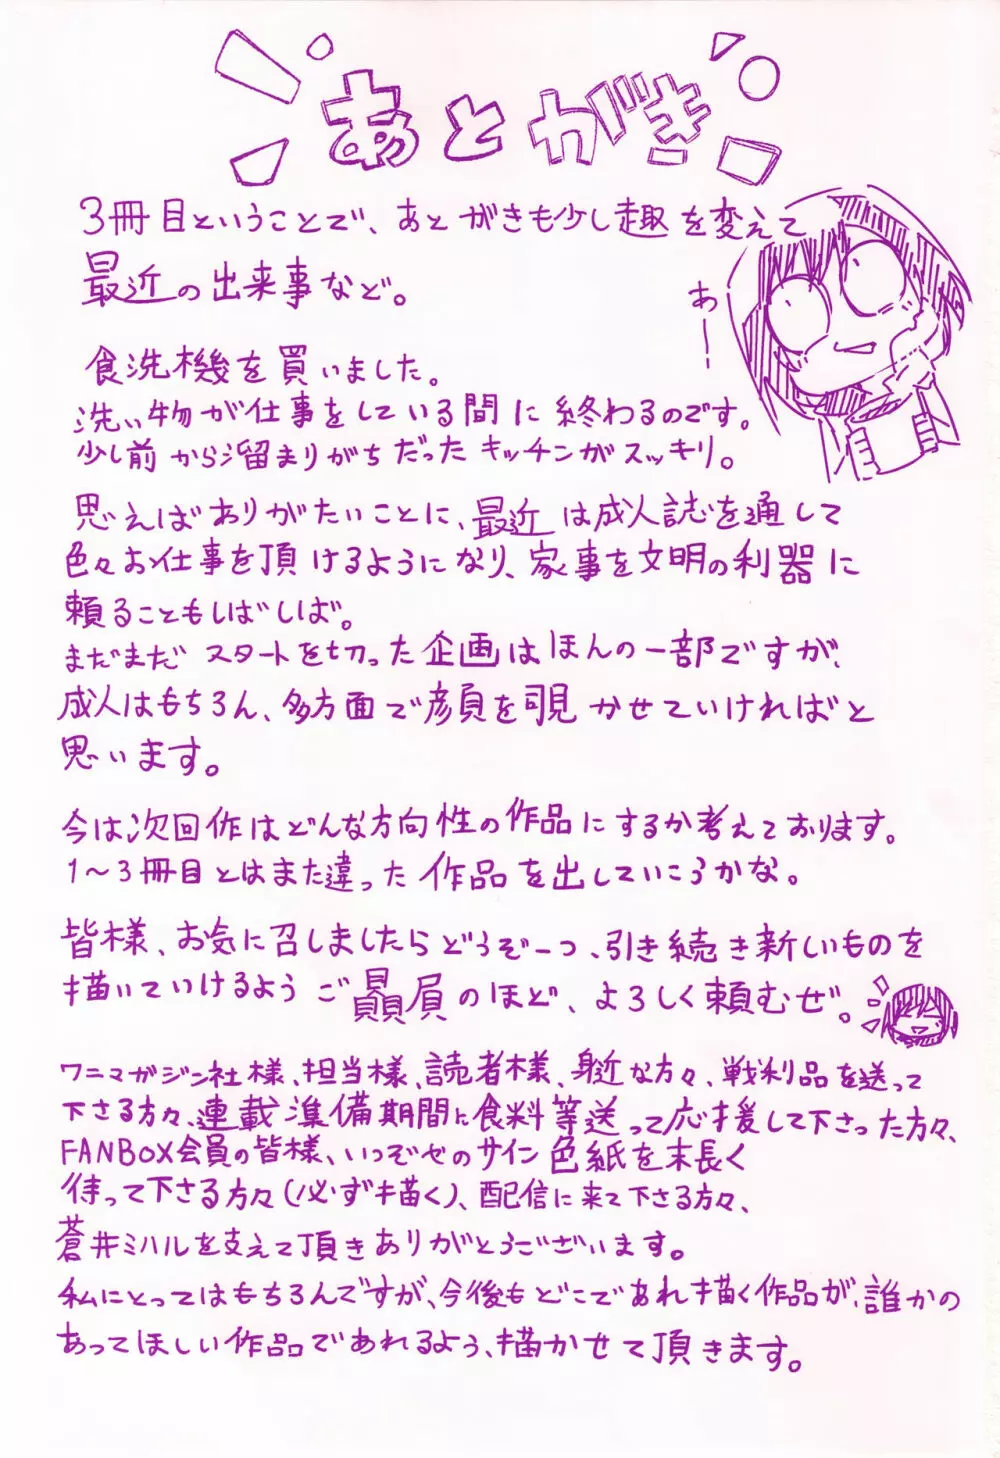 あとがき
3冊目ということで、あとがきも少し趣を変えて
最近の出来事など。
あー
食洗機を買いました。
洗い物が仕事をしている間に終わるのです。
少し前から溜まりがちだったキッチンがスッキリ。
思えばありがたいことに、最近は成人誌を通して
色々お仕事を頂けるようになり、家事を文明の利器に
頼ることもしばしば。
まだまだスタートを切った企画はほんの一部ですが、
成人はもちろん、多方面で顔を覗かせていければと
思います。
今は次回作はどんな方向性の作品にするか考えております。
1〜3冊目とはまた違った作品を出していこうかな。
皆様、お気に召しましたらどうぞ一つ、引き続き新しいものを
描いていけるようご贔屓のほど、よろしく頼むぜ。
ワニマガジン社様、担当様、読者様、身近な方々、戦利品を送って
下さる方々、連載準備期間に食料等送って応援して下さった方々、
FANBOX会員の皆様、いつぞやのサイン色紙を末長く
待って下さる方々(必ず描く)、配信に来て下さる方々、
蒼井ミハルを支えて頂きありがとうございます。
私にとってはもちろんですが、今後もどこであれ描く作品が、誰かの
あってほしい作品であれるよう、描かせて頂きます。